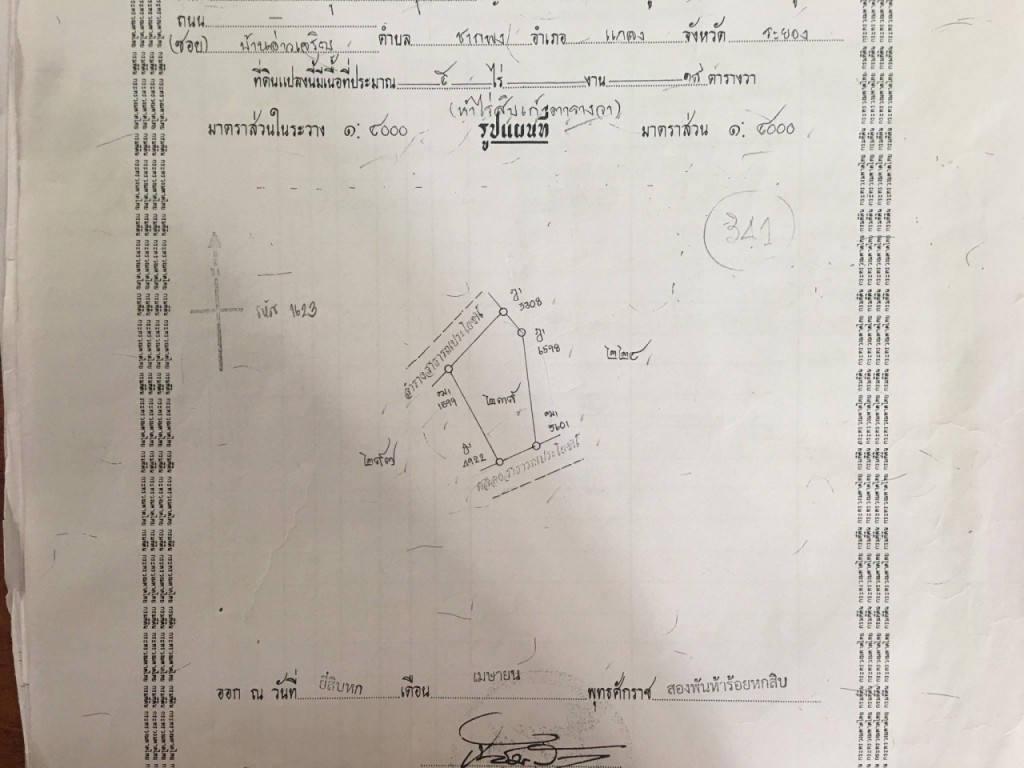 ถนน
(ซอย) บ้านอ่าวเจริญ ตำบล ชากพง อำเภอ แกลง จังหวัด ระยอง
ที่ดินแปลงนี้มีเนื้อที่ประมาณ ๕ ไร่ งาน ๑๙ ตารางวา
(ห้าไร่สิบเก้าตารางวา)
มาตราส่วนในระวาง ๑: ๔๐๐๐ รูปแผนที่ มาตราส่วน ๑: ๔๐๐๐
341
รหัส 1623
ลำรางสาธารณประโยชน์
3308
6598
๒๒๔
หม1
1899
๒๓๙
หม1
5601
4922
คลองสาธารณประโยชน์
ออก ณ วันที่ ยี่สิบหก เดือน เมษายน พุทธศักราช สองพันห้าร้อยหกสิบ